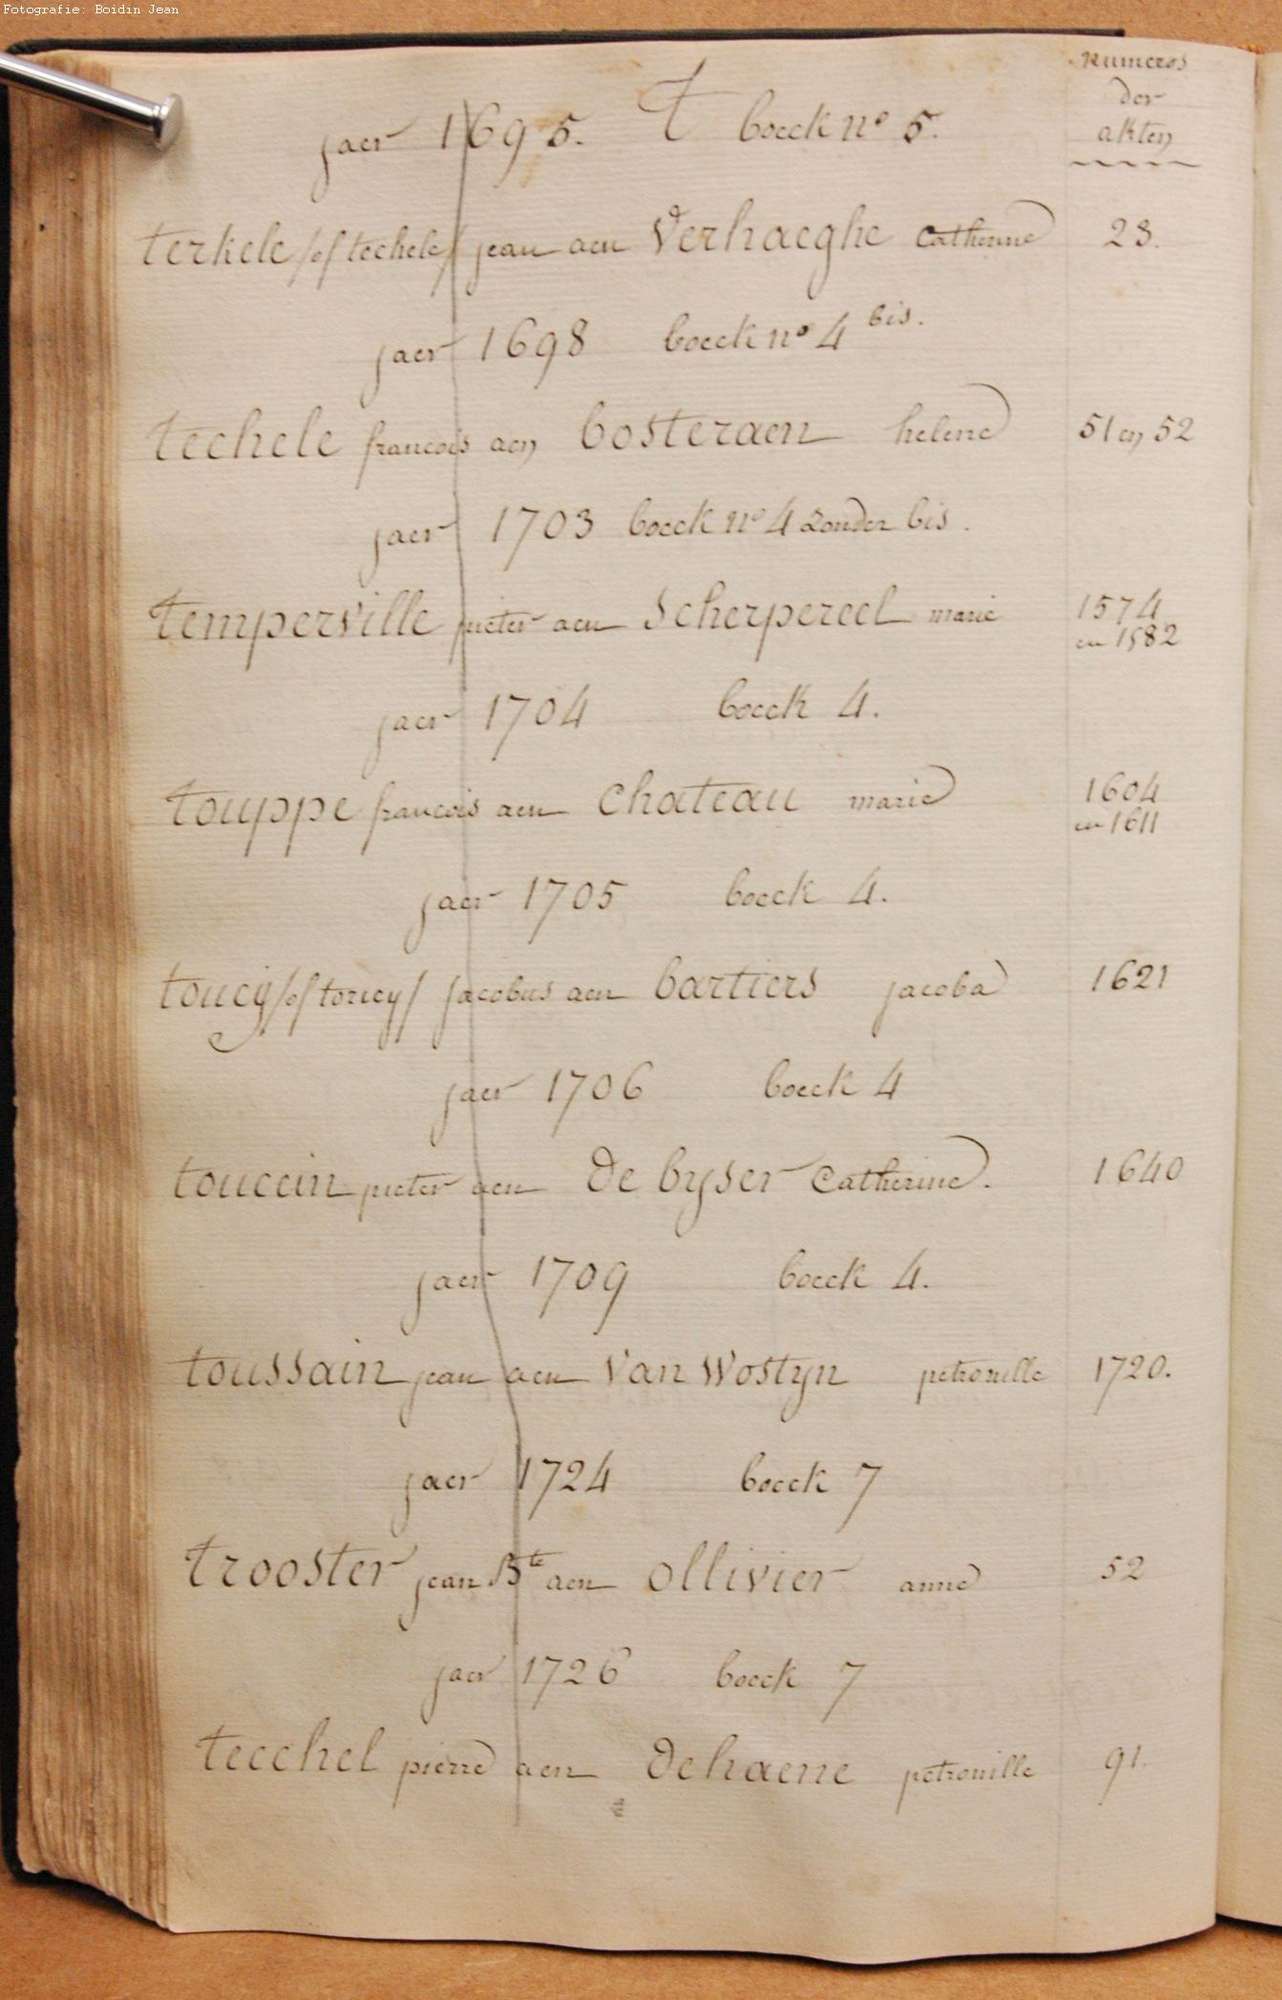 Fotografie: Boidin Jean
Numeros
der
akten
jaer 1695. T boeck n° 5.
terkele /of techele/ jean aen Verhaeghe Catherine 28.
jaer 1698 boeck n° 4 bis.
techele francois aen bosteraen helene 51 en 52
jaer 1703 boeck n° 4 zonder bis.
temperville pieter aen Scherpereel marie 1574
en 1582
jaer 1704 boeck 4.
touppe francois aen Chateau marie 1604
en 1611
jaer 1705 boeck 4.
toucy /of toricy/ jacobus aen bartiers jacoba 1621
jaer 1706 boeck 4
toucein pieter aen De byser Catherine. 1640
jaer 1709 boeck 4.
toussain jean aen Van Wostyn petronille 1720.
jaer 1724 boeck 7
trooster jean Bte aen Ollivier anne 52
jaer 1726 boeck 7
tecchel pierre aen Dehaene petronille 91.